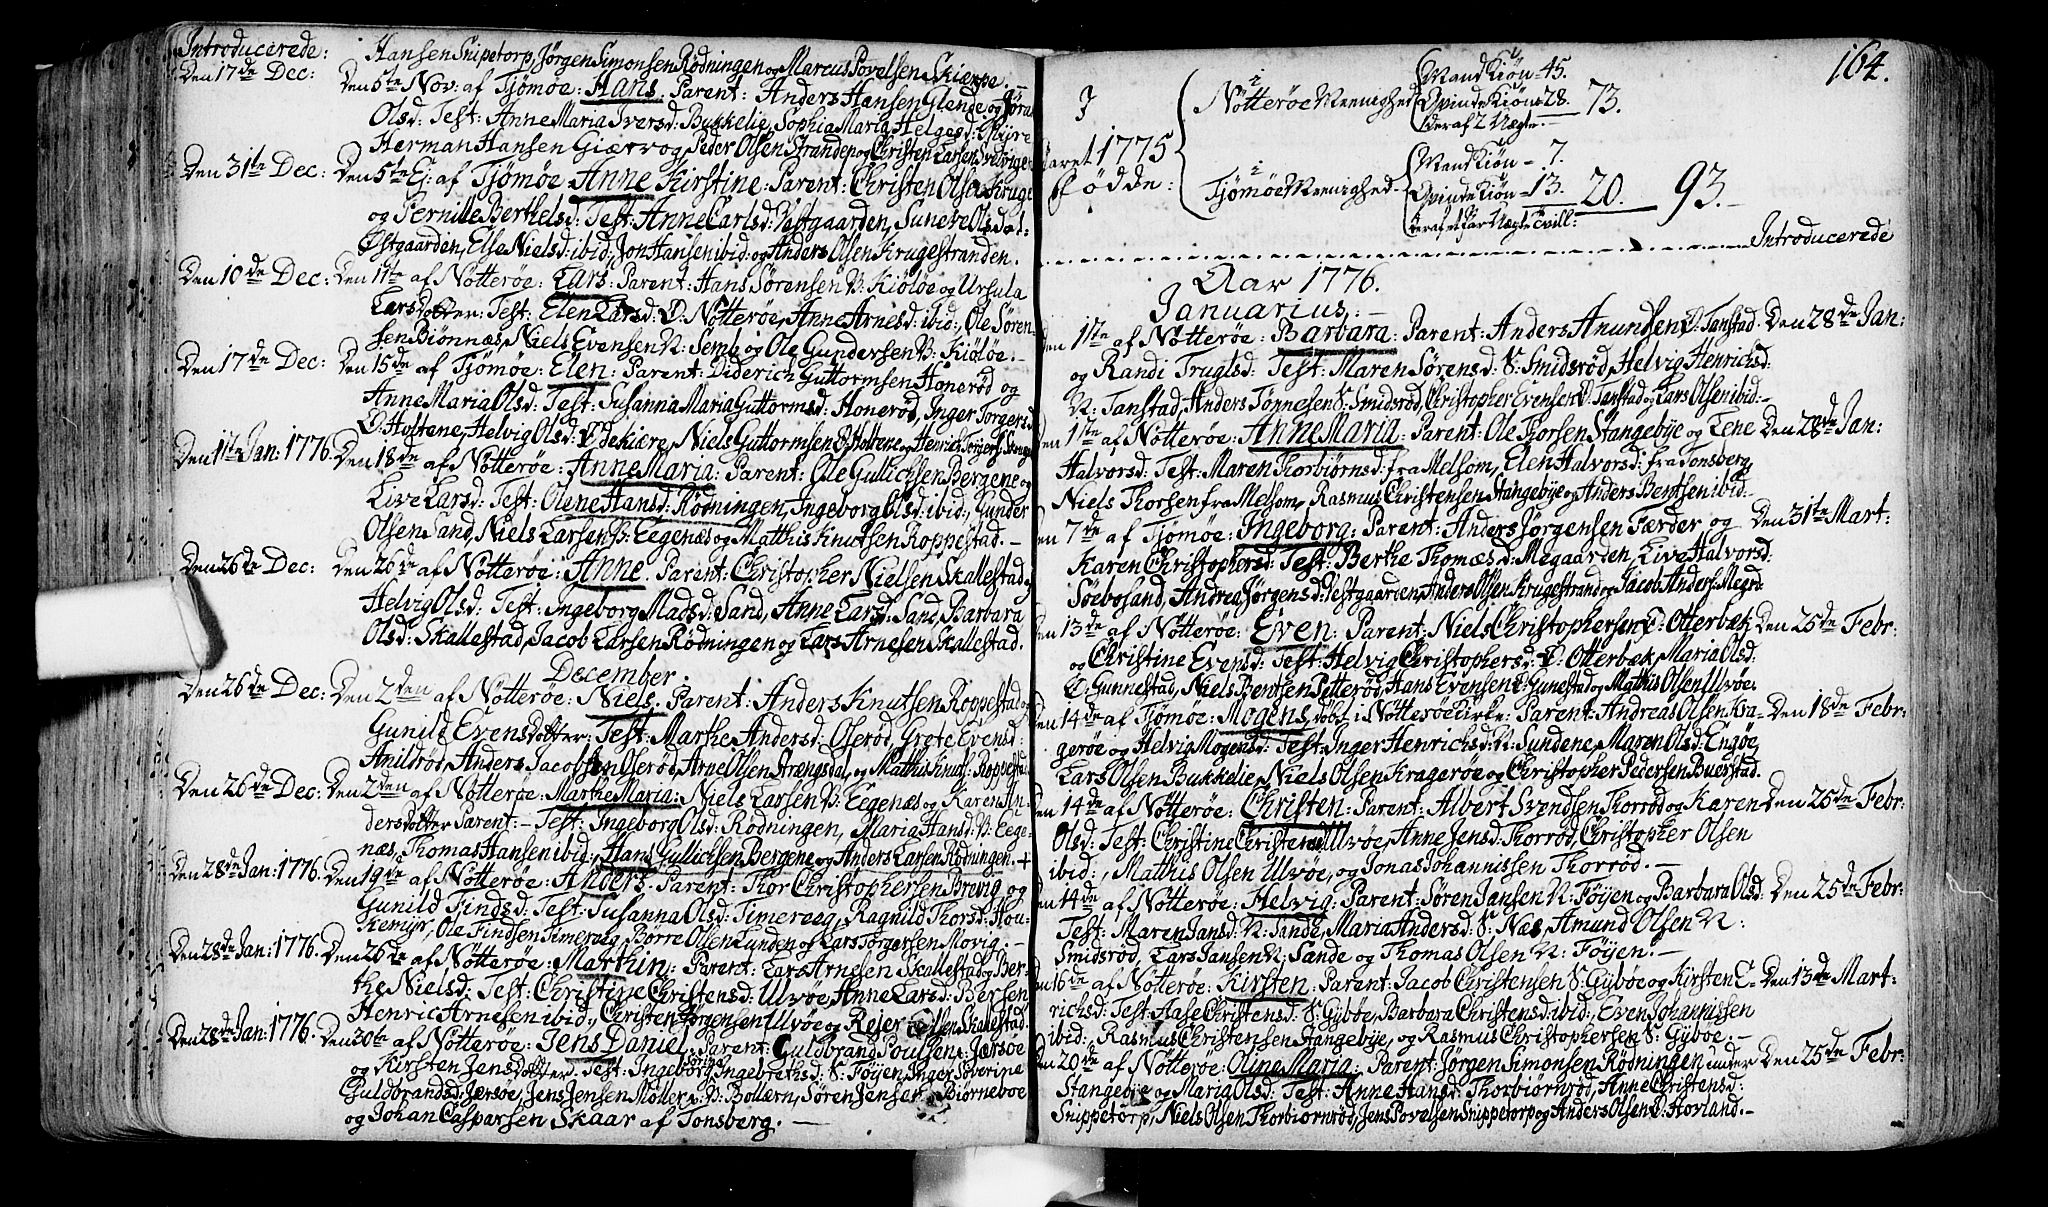 Introducerede:
Hansen Snipetorp, Jørgen Simonsen Rødningen og Marcus Povelsen Skierpe.
Den 17de Dec: Den 5te Nov: af Tjømøe: Hans. Parent: Anders Hansen Glende og Jøra
Olsd: Test: Anne Maria Iversd: Bukkelie, Sophia Maria Helgesd:
Herman Hansen Gierv og, Peder Olsen Stranden og Christen Larsen
Den 31te Dec: Den 5te Ej: af Tjømøe Anne Kirstine: Parent: Christen Olsen Kruge
og Pernille Berthelsd: Test: Anne Carlsd: Vestgaarden, Suneve Olsdat-
Østgaarden, Else Nielsd: ibid: Jon Hansen ibid: og Anders Olsen Krugestranden.
Den 10de Dec: Den 11te af Nøtterøe: Lars: Parent: Hans Sørensen N: Kiøløe og Ursula
Larsdotter: Test: Elen Larsd: Ø: Nøtterøe, Anne Arnesd: ibid:, Ole Søren-
sen Biønnæs, Niels Evensen N: Semb og Ole Gundersen N: Kiøløe.-
Den 17de Dec: Den 15de af Tjømøe: Elen: Parent: Diderich Guttormsen Honerød og
Anne Maria Olsd: Test: Susanna Maria Guttormsd: Honerød, Inger Jorgersd
Ø: Holtene, Helvig Olsd: Ø: Dekiære, Niels Guttormsen Ø: Holtene og Henrich
Den 11te Jan: 1776. Den 18de af Nøtterøe: Anne Maria: Parent: Ole Gullichsen Bergene og
Live Larsd: Test: Olene Hansd: Rødningen, Ingeborg Olsd: ibid:, Gunder
Olsen Sand, Niels Larsen N: Eegenæs og Mathis Knutsen Roppestad.-
Den 26de Dec: Den 20de af Nøtterøe: Anne. Parent: Christopher Nielsen Skallestad og
Helvig Olsd: Test: Ingeborg Madsd: Sand, Anne Larsd: Sand, Barbara
Olsd: Skallestad, Jacob Larsen Rødningen og Lars Arnesen Skallestad.
December.
Den 26de Dec: Den 2den af Nøtterøe: Niels. Parent: Anders Knutsen Roppestad og
Gunild Evensdotter: Test: Marthe Andersd: Oserød, Grete Evensd:
Anildrød, Anders Jacobsen Oserød, Arne Olsen Strængsdal, og Mathis Knuts: Roppestad
Den 26de Dec: Den 2den af Nøtterøe: Marthe Maria: Niels Larsen N: Eegenæs og Karen An-
dersdotter Parent:- Test: Ingeborg Olsd: Rødningen, Maria Hansd: N: Eege-
næs, Thomas Hansen ibid:, Hans Gullichsen Bergene og Anders Larsen Rødningen. +
Den 28de Jan: 1776. Den 19de af Nøtterøe: Anders. Parent: Thor Christophersen Brevig og
Gunild Findsd: Test: Susanna Olsd: Timereeg, Ragnild Thorsd: Hou-
Kemyr, Ole Findsen Timereeg, Børre Olsen Lunden og Lars Jørgersen Movig.-
Den 28de Jan: 1776. Den 26de af Nøtterøe: Marthin: Parent: Lars Arnesen Skallestad og Ber-
the Nielsd: Test: Christine Christensd: Ulvøe, Anne Larsd: Bersen
Henric Arnesen ibid:, Christen Jørgensen Ulvøe og Rejer Olsen Skallestad.
Den 28de Jan: 1776. Den 30te af Nøtterøe: Jens Daniel. Parent: Guldbrang Poulsen Jærsøe
og Kirsten Jensdotter: Test: Ingeborg Ingebrethsd: S: Føyen, Inger Soverine
Guldbrandsd: Jærsøe, Jens Jensen Møller N: Bollærn, Søren Jensen Biørneboe
og Johan Casparsen Skaar af Tønsberg. —
164.
I
Aaret 1775
Fødde:
i Nøtterøe Menighed
Mand Kiøn = 45.
Qvinde Kiøn = 28. 73.
deraf 2 Uægte.-
i Tjømøe Menighed
Mand Kiøn - 7.
Qvinde Kiøn = 13. 20. 93.
deraf et par Uægte Tvill:
Introducerede
Aar 1776.
Januarius.
Den 1ste af Nøtterøe: Barbara: Parent: Anders Anundsen Ø: Tanstad. Den 28de Jan:
og Randi Truglsd: Test: Maren Sørensd: S: Smidsrød, Helvig Henrichsd:
N: Tanstad, Anders Tønnesen S: Smidsrød, Christopher Evensen Ø: Tanstad og Lars Olsen ibid.-
Den 1ste af Nøtterøe: Anne Maria: Parent: Ole Thorsen Stangebye og Lene Den 28de Jan:
Halvorsd: Test: Maren Thorbiørnsd: fra Melsom, Elen Halvorsd: fra Tonsberg,
Niels Thorsen fra Melsom, Rasmus Christensen Stangebye og Anders Bentsen ibid:
Den 7de af Tjømøe: Ingeborg: Parent: Anders Jørgensen Færder og Den 31te Mart:
Karen Christophersd: Test: Berthe Thomæsd: Megaarden, Live Halvorsd:
Søebosand, Andrea Jørgensd: Vestgaarden, Anders Olsen Krugestrand og Jacob Anders: Megrd:
Den 13de af Nøtterøe: Even: Parent: Niels Christophersen Ø: Otterbæk Den 25de Febr:
og Christine Evensd: Test: Helvig Christophersd: Ø: Otterbæk, Maria Olsd:
Ø: Gunnestad, Niels Bentsen Petterød, Hans Evensen Ø: Gunestad og Mathis Olsen Ulvøe.
Den 14de af Tjømøe: Mogens, døbt i Nøtterøe Kirke: Parent: Andreas Olsen Kra- Den 18de Febr:
gerøe og Helvig Mogensd: Test: Inger Henrichsd: N: Sundene, Maren Olsd: Engøe,
Lars Olsen Bukkelie, Niels Olsen Kragerøe og Christopher Pedersen Buerstad.
Den 14de af Nøtterøe: Christen: Parent: Albert Svendsen Thorrød og Karen Den 25de Febr:
Olsd: Test: Christine Christensd: Ulvøe, Anne Jensd: Thorrød, Christopher Olsen
ibid:, Mathis Olsen Ulvøe, og Jonas Johannissen Thorrød.—
Den 14de af Nøtterøe: Helvig: Parent: Søren Jansen N: Føyen og Barbara Olsd: Den 25de Febr:
Test: Maren Jansd: N: Sande, Maria Andersd: S: Næs, Amund Olsen N:
Smidsrød, Lars Jansen N: Sande og Thomas Olsen N: Føyen.-
Den 16de af Nøtterøe: Kirsten: Parent: Jacob Christensen S: Gÿbøe og Kirsten E- Den 13de Mart:
richsd: Test: Aase Christensd: S: Gÿbøe, Barbara Christensd: ibid:, Even Johannissen
ibid:, Rasmus Christensen Stangebye, og Rasmus Christophersen S: Gÿbøe.-
Den 20de af Nøtterøe: Oline Maria: Parent: Jørgen Simonsen Rødningen under Den 25de Febr:
Stangebye og Maria Olsd: Test: Anne Hansd: Thorbiørnrød, Anne Christensd:
Snippetorp, Niels Olsen Thorbiørnrød, Jens Povelsen Snippetorp og Anders Olsen Ø: Hovland.-